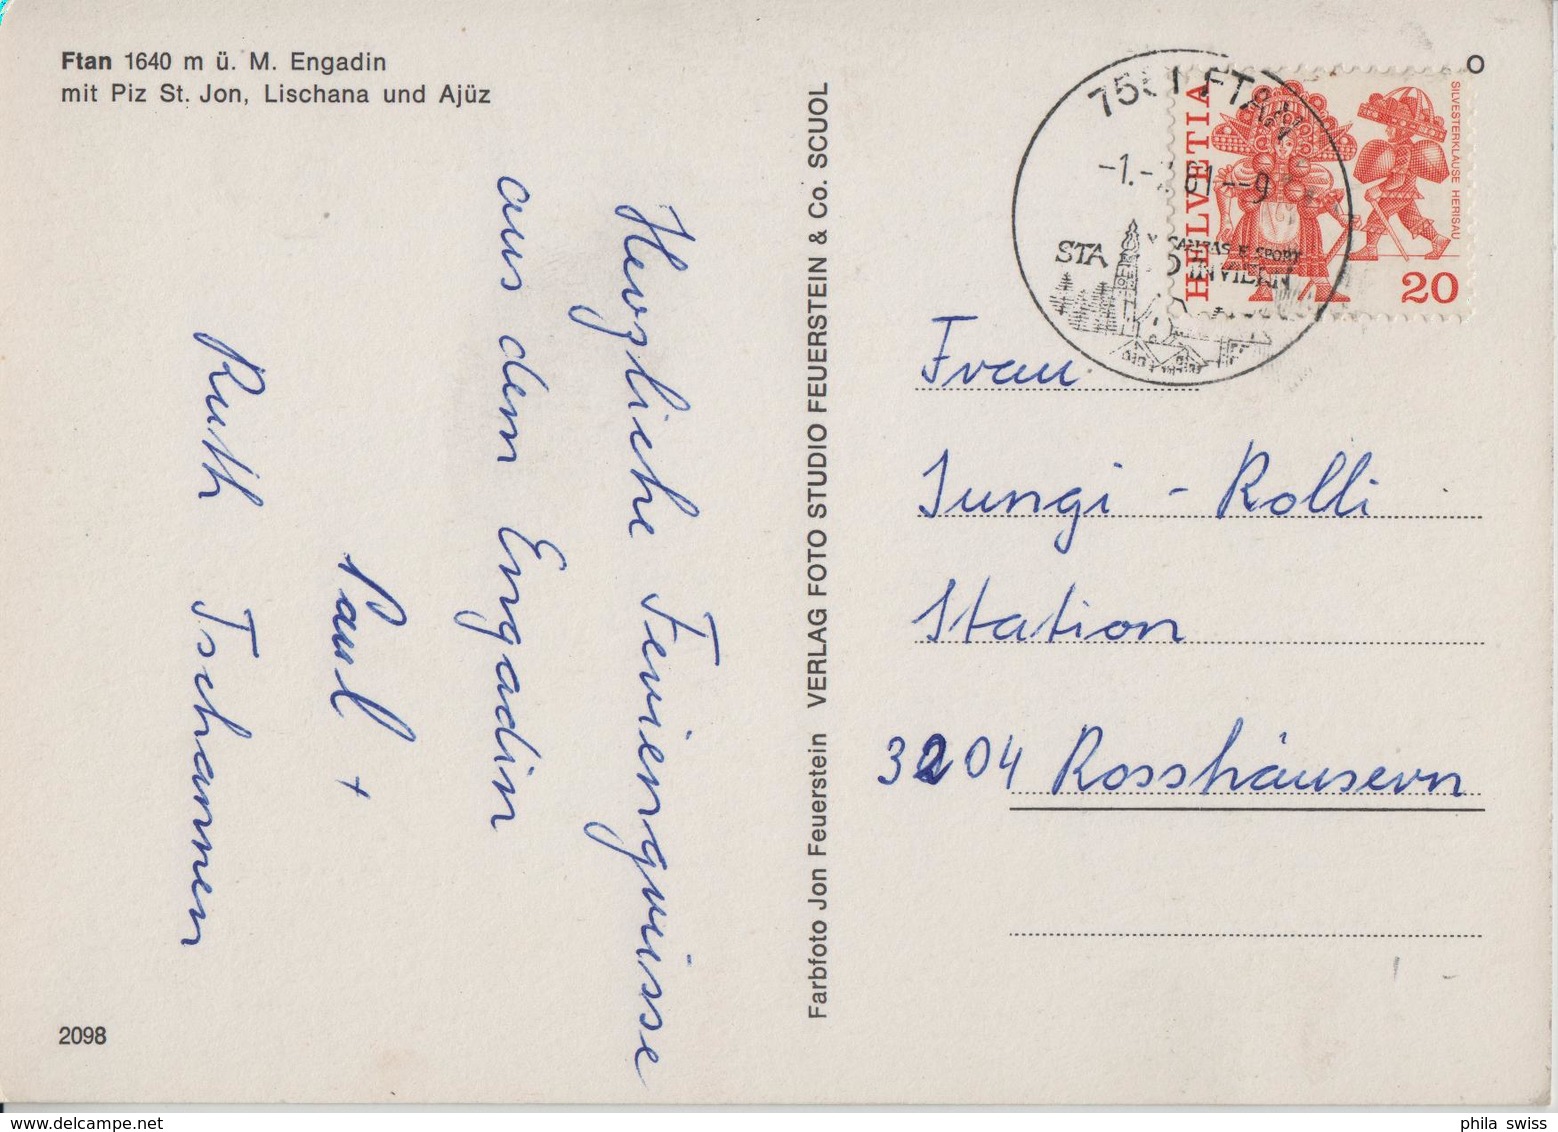 Ftan 1640 m ü. M. Engadin
mit Piz St. Jon, Lischana und Ajüz
Herzliche Feriengrüsse
aus dem Engadin
Paul +
Ruth Tschannen
2098
Farbfoto Jon Feuerstein VERLAG FOTO STUDIO FEUERSTEIN & Co. SCUOL
FTAN
STA
SANDAS E SPORT
D'INVIERN
HELVETIA
SILVESTERKLÄUSE HERISAU
20
Frau
Jungi - Rolli
Station
3204 Rosshäusern
phila swiss